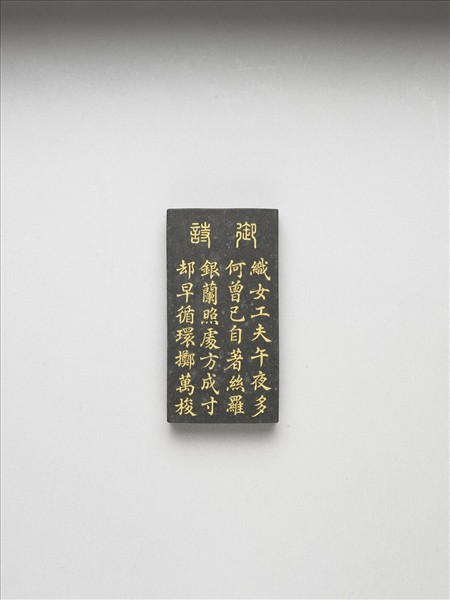 御詩
織女工夫午夜多
何曾己自著絲羅
銀蘭照處方成寸
却早循環擲萬梭